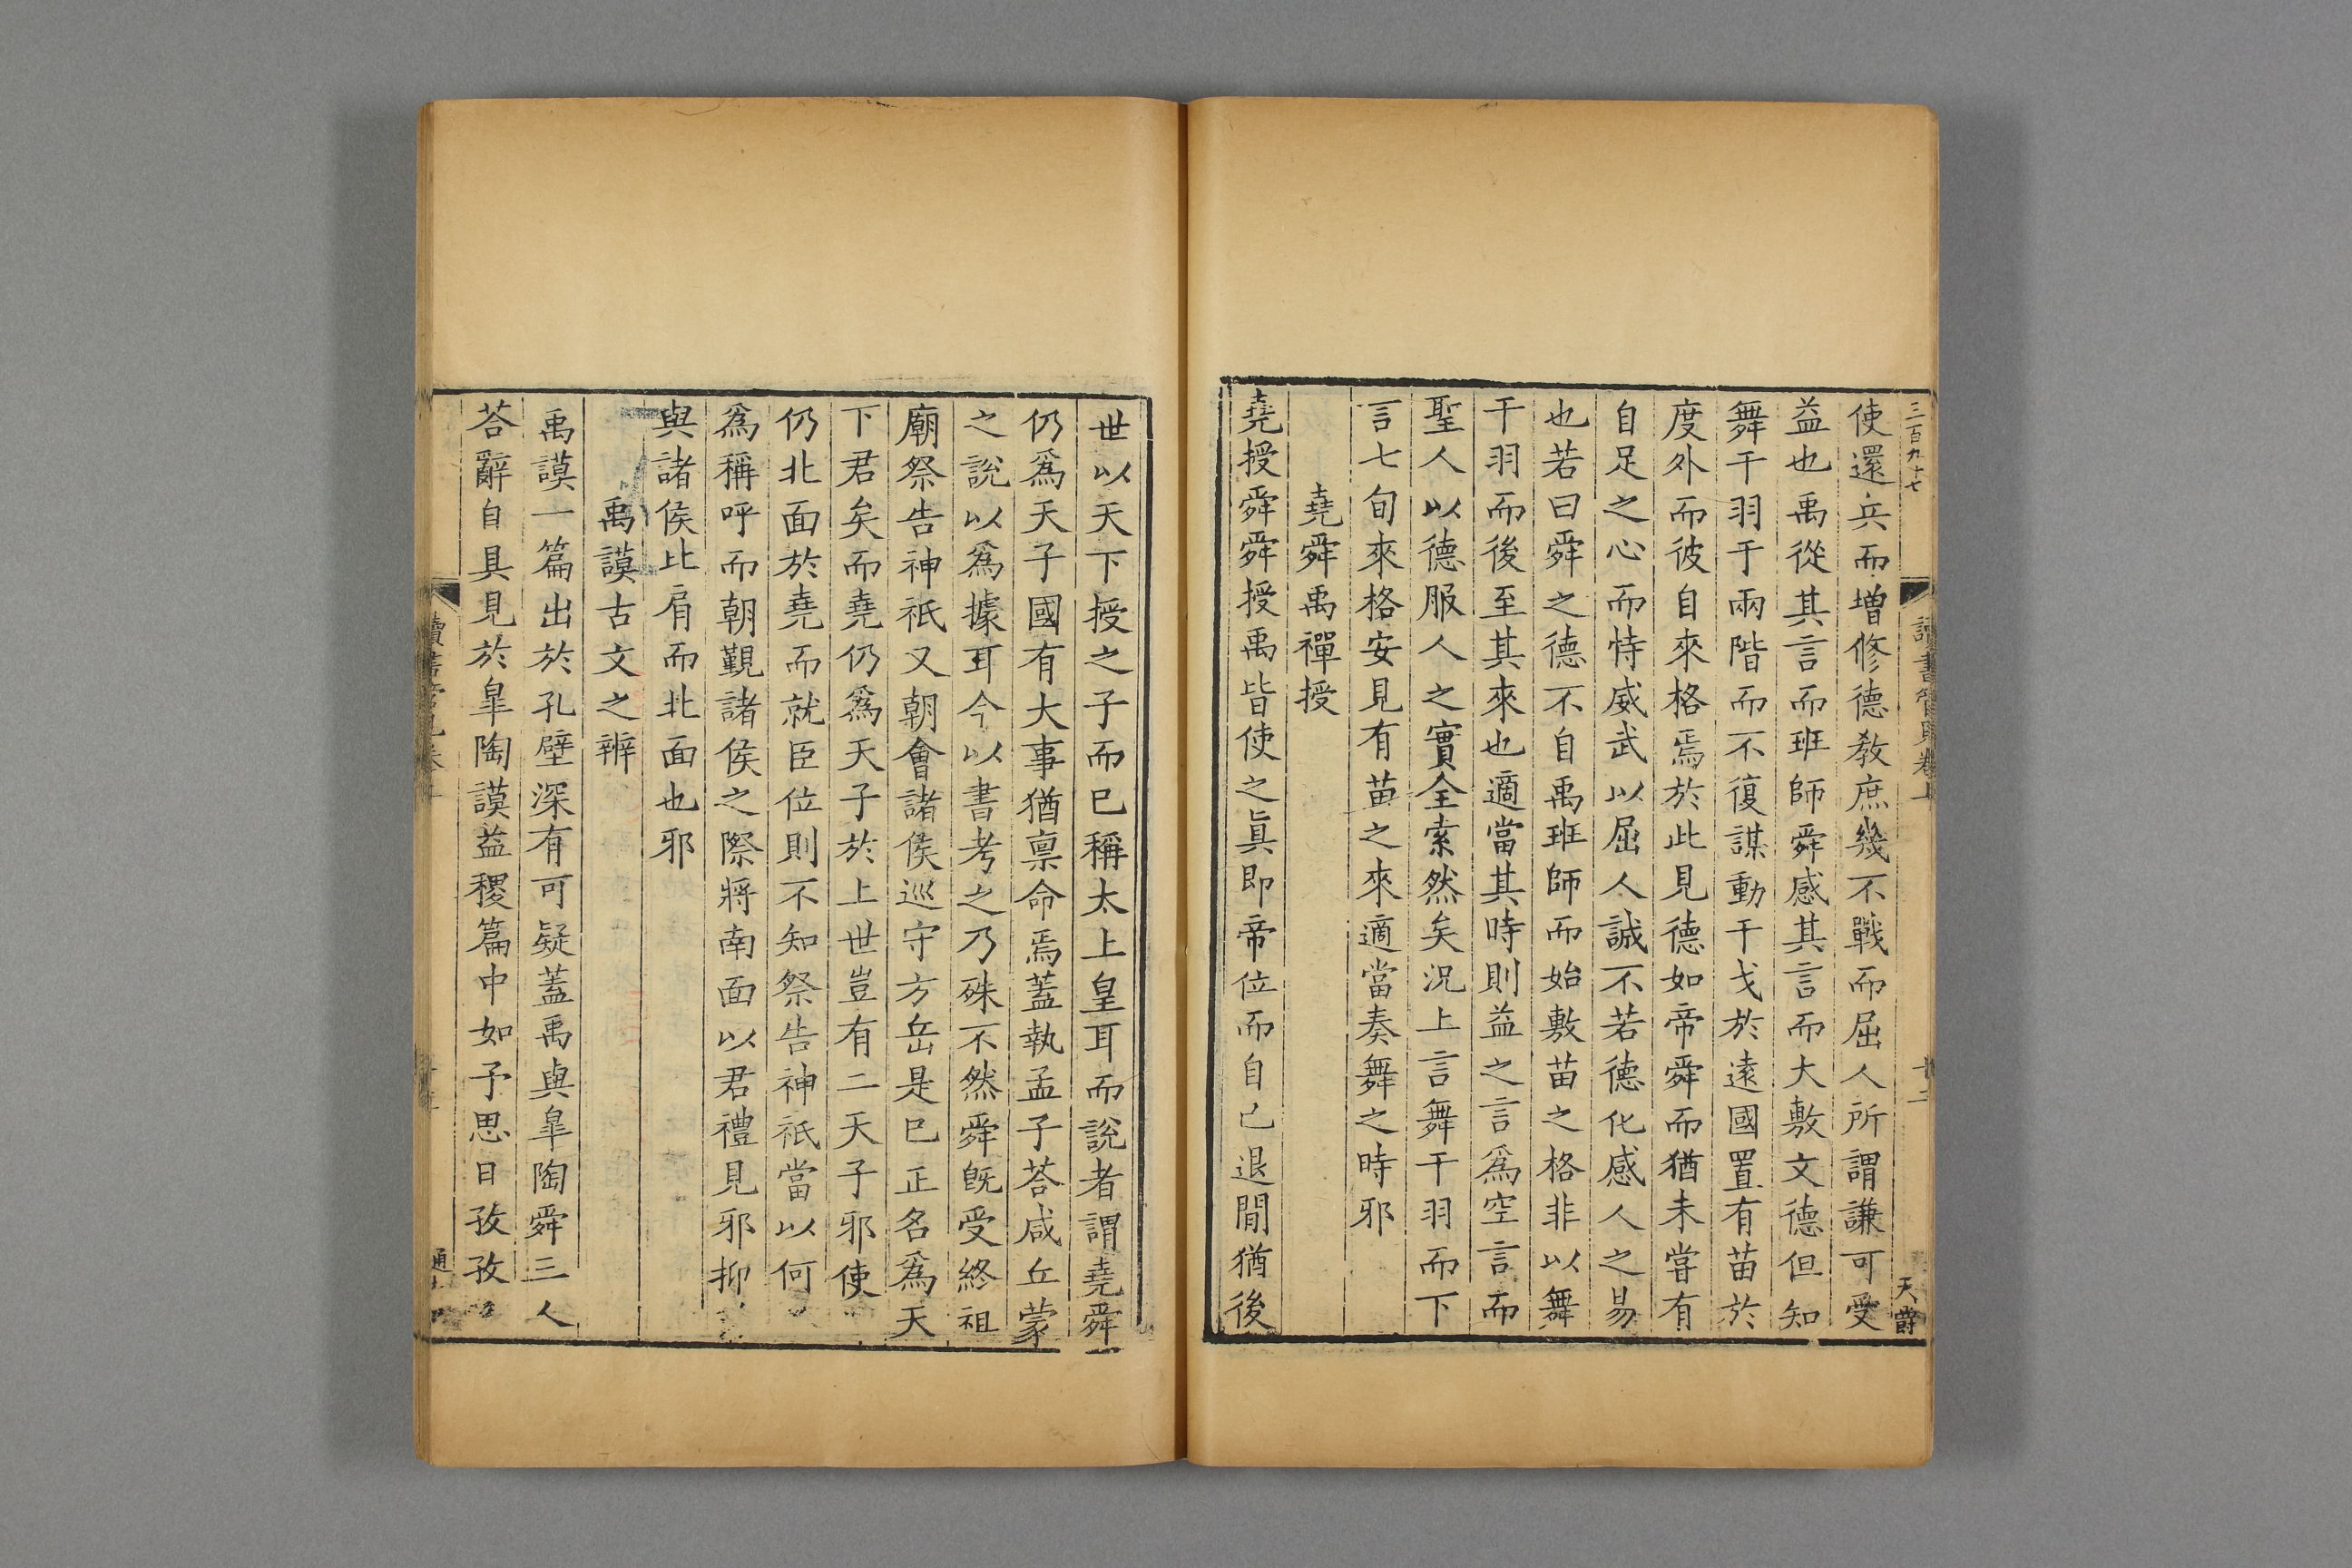 三百九十七
讀書管見卷上
十二
天爵
使還兵而増修德教庶幾不戰而屈人所謂謙可受
益也禹從其言而班師舜感其言而大敷文德但知
舞干羽于兩階而不復謀動干戈於遠國置有苗於
度外而彼自來格焉於此見德如帝舜而猶未甞有
自足之心而恃威武以屈人誠不若德化感人之易
也若曰舜之德不自禹班師而始敷苗之格非以舞
干羽而後至其來也適當其時則益之言爲空言而
聖人以德服人之實全索然矣況上言舞干羽而下
言七旬來格安見有苗之來適當奏舞之時邪
堯舜禹禪授
堯授舜舜授禹皆使之眞即帝位而自己退閒猶後
世以天下授之子而已稱太上皇耳而說者謂堯舜
仍爲天子國有大事猶禀命焉蓋執孟子荅咸丘蒙
之說以爲據耳今以書考之乃殊不然舜旣受終祖
廟祭告神祇又朝會諸侯巡守方岳是已正名爲天
下君矣而堯仍爲天子於上世豈有二天子邪使
仍北面於堯而就臣位則不知祭告神祇當以何
爲稱呼而朝覲諸侯之際將南面以君禮見邪抑
與諸侯比肩而北面也邪
禹謨古文之辨
禹謨一篇出於孔壁深有可疑蓋禹與臯陶舜三人
荅辭自具見於臯陶謨益稷篇中如予思日孜孜
讀書管見卷上
通